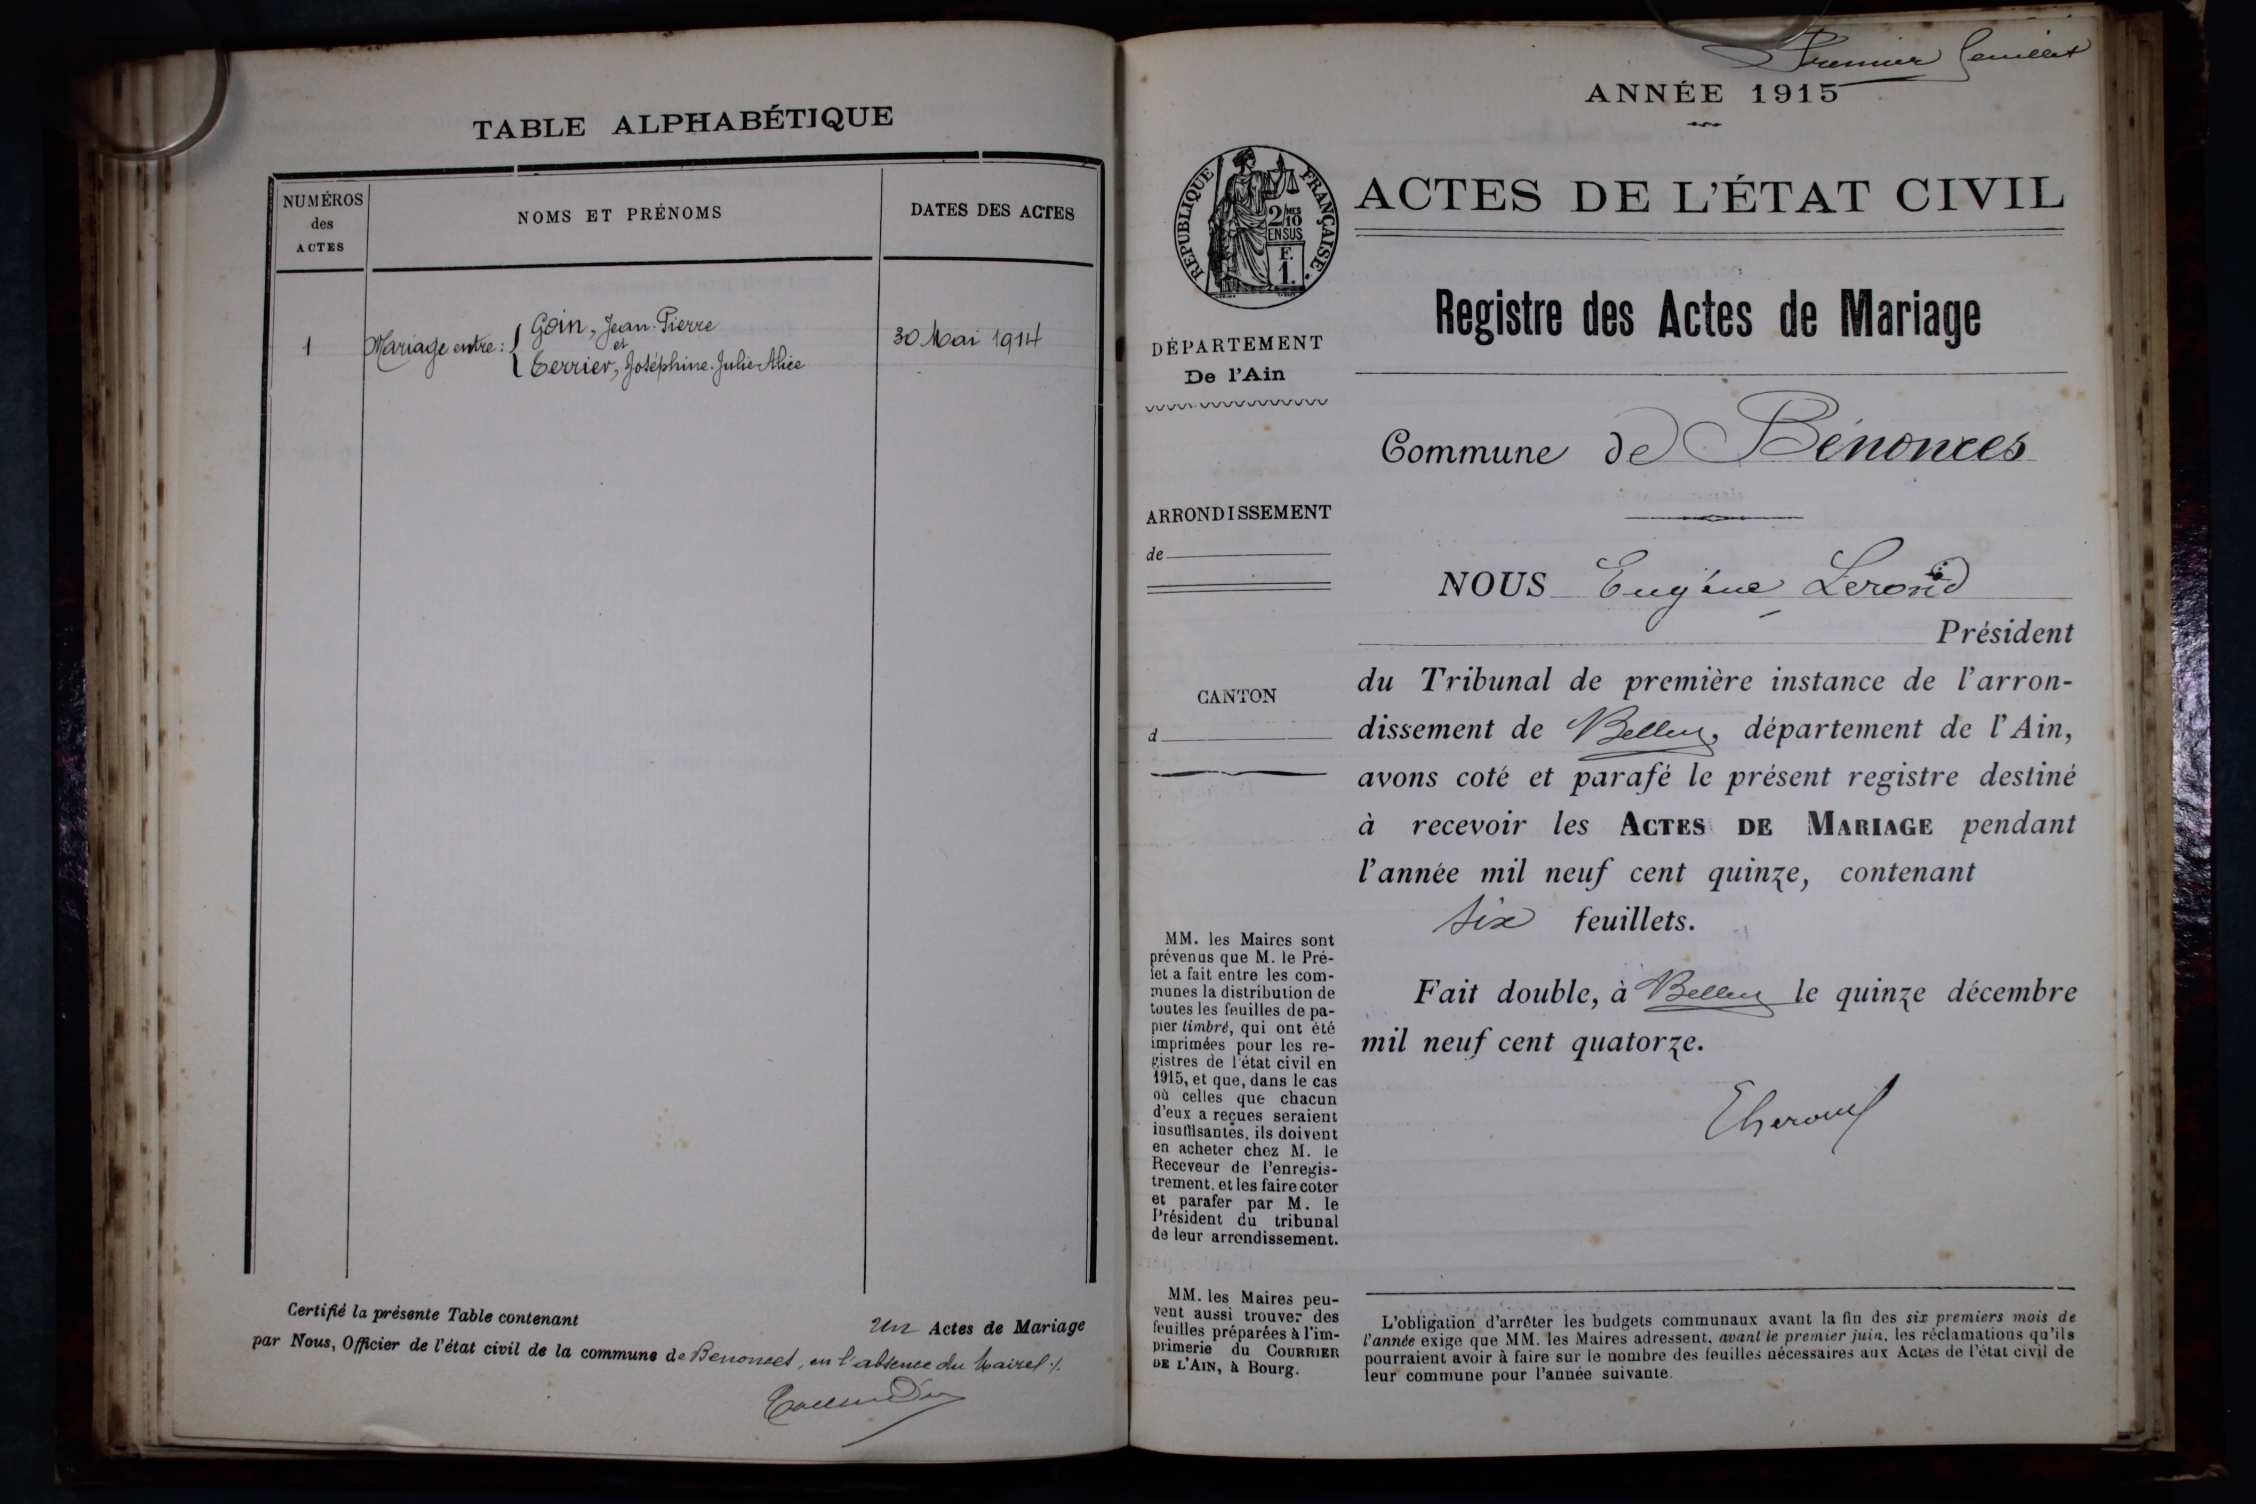 TABLE ALPHABÉTIQUE
NUMÉROS
des
ACTES
NOMS ET PRÉNOMS
DATES DES ACTES
1
Mariage entre :
Goin, Jean-Pierre
et
Terrier, Joséphine-Julie-Alice
30 Mai 1914
Certifié la présente Table contenant Un Actes de Mariage
par Nous, Officier de l'état civil de la commune de Benonces, en l'absence du Maire
Premier feuillet
ANNÉE 1915
RÉPUBLIQUE FRANÇAISE.
2/10
MES
EN SUS
F.
1.
ACTES DE L'ÉTAT CIVIL
Registre des Actes de Mariage
DÉPARTEMENT
De l'Ain
Commune de Bénonces
ARRONDISSEMENT
de
CANTON
d
NOUS Eugène
Président
du Tribunal de première instance de l'arron-
dissement de Belley, département de l'Ain,
avons coté et parafé le présent registre destiné
à recevoir les ACTES DE MARIAGE pendant
l'année mil neuf cent quinze, contenant
six feuillets.
Fait double, à Belley le quinze décembre
mil neuf cent quatorze.
MM. les Maires sont
prévenus que M. le Pré-
fet a fait entre les com-
munes la distribution de
toutes les feuilles de pa-
pier timbré, qui ont été
imprimées pour les re-
gistres de l'état civil en
1915, et que, dans le cas
où celles que chacun
d'eux a reçues seraient
insuffisantes, ils doivent
en acheter chez M. le
Receveur de l'enregis-
trement, et les faire coter
et parafer par M. le
Président du tribunal
de leur arrondissement.
MM. les Maires peu-
vent aussi trouver des
feuilles préparées à l'im-
primerie du COURRIER
DE L'AIN, à Bourg.
L'obligation d'arrêter les budgets communaux avant la fin des six premiers mois de
l'année exige que MM. les Maires adressent, avant le premier juin, les réclamations qu'ils
pourraient avoir à faire sur le nombre des feuilles nécessaires aux Actes de l'état civil de
leur commune pour l'année suivante.